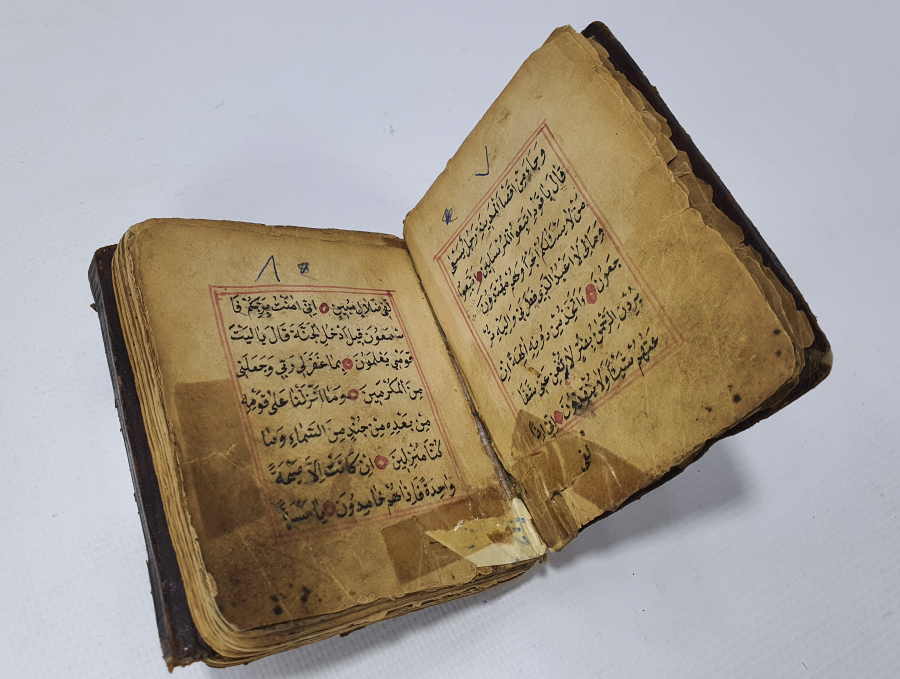 ٧
وَجَاءَ مِنْ اَقْصَا الْمَدِينَةِ رَجُلٌ يَسْعٰى
قَالَ يَا قَوْمِ اتَّبِعُوا الْمُرْسَلِينَ اِتَّبِعُوا
مَنْ لَا يَسْئَلُكُمْ اَجْرًا وَهُمْ مُهْتَدُونَ
وَمَالِيَ لَا اَعْبُدُ الَّذِي فَطَرَنِي وَاِلَيْهِ تُرْ
جَعُونَ ءَاَتَّخِذُ مِنْ دُونِهِ اٰلِهَةً اِنْ
يُرِدْنِ الرَّحْمٰنُ بِضُرٍّ لَا تُغْنِ عَنِّي شَفَا
عَتُهُمْ شَيْئًا وَلَا يُنْقِذُونَ اِنِّي اِذًا
لفي
٨
لَفِي ضَلَالٍ مُبِينٍ اِنِّي اٰمَنْتُ بِرَبِّكُمْ فَا
سْمَعُونِ قِيلَ ادْخُلِ الْجَنَّةَ قَالَ يَا لَيْتَ
قَوْمِي يَعْلَمُونَ بِمَا غَفَرَ لِي رَبِّي وَجَعَلَنِي
مِنَ الْمُكْرَمِينَ وَمَا اَنْزَلْنَا عَلٰى قَوْمِهِ
مِنْ بَعْدِهِ مِنْ جُنْدٍ مِنَ السَّمَاءِ وَمَا
كُنَّا مُنْزِلِينَ اِنْ كَانَتْ اِلَّا صَيْحَةً
وَاحِدَةً فَاِذَا هُمْ خَامِدُونَ يَا حَسْرَةً